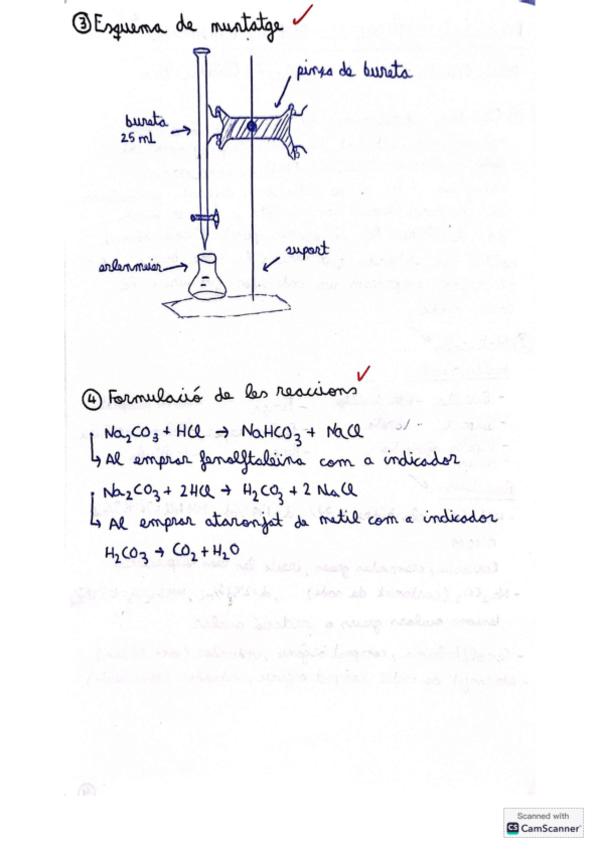 ③ Esquema de muntatge
pinça de bureta
bureta
25 mL
suport
erlenmeier
④ Formulació de les reaccions
Na₂CO₃ + HCl → NaHCO₃ + NaCl
↳ Al emprar fenolftaleïna com a indicador
Na₂CO₃ + 2HCl → H₂CO₃ + 2 NaCl
↳ Al emprar ataronjat de metil com a indicador
H₂CO₃ → CO₂ + H₂O
Scanned with
CS CamScanner